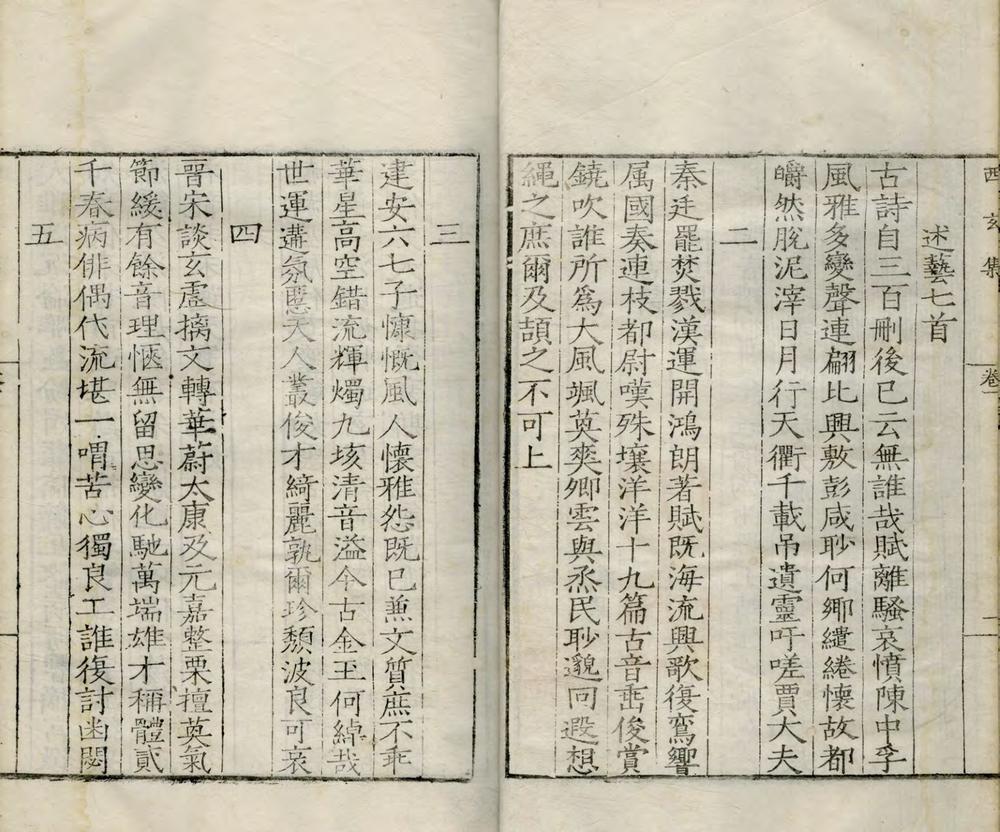 西玄集
卷一
述藝七首
古詩自三百刪後已云無誰哉賦離騷哀憤陳中孚
風雅多變聲連翩比興敷彭咸眇何鄉繾綣懷故都
皭然脫泥滓日月行天衢千載吊遺靈吁嗟賈大夫
二
秦廷罷焚戮漢運開鴻朗著賦旣海流興歌復鸞響
属國奏連枝都尉嘆殊壤洋洋十九篇古音啚俊賞
鐃吹誰所爲大風颯英爽卿雲與烝民眇邈回遐想
繩之庶爾及頡之不可上
三
建安六七子慷慨風人懷雅怨旣已兼文質庶不乖
華星高空錯流輝燭九垓清音溢今古金玉何綽哉
世運遘氛慝天人叢俊才綺麗孰爾珍頹波良可哀
四
晉宋談玄虛摛文轉華蔚太康及元嘉整栗擅英氣
節緩有餘音理愜無留思變化馳萬端雄才稱體貳
千春病俳偶代流堪一喟苦心獨良工誰復討幽閟
五